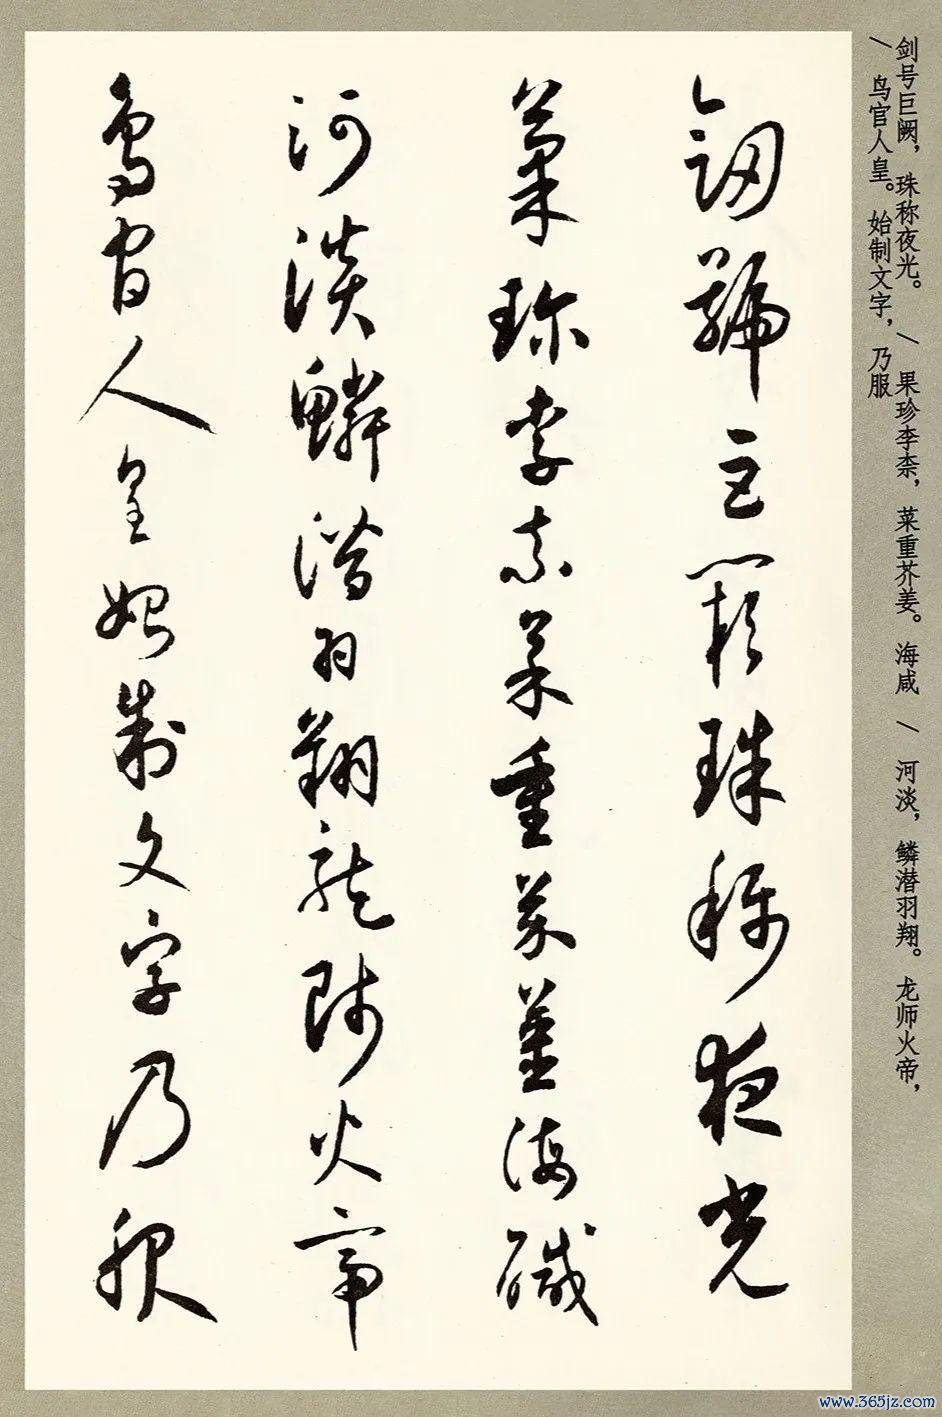 剑号巨阙，珠称夜光。／果珍李柰，菜重芥姜。海咸／河淡，鳞潜羽翔。龙师火帝，
／鸟官人皇。始制文字，乃服
劒號巨闕珠称夜光
菓珍李柰菜重芥薑海醎
河淡鱗潛羽翔龍師火帝
鳥官人皇始制文字乃服
www.365jz.com